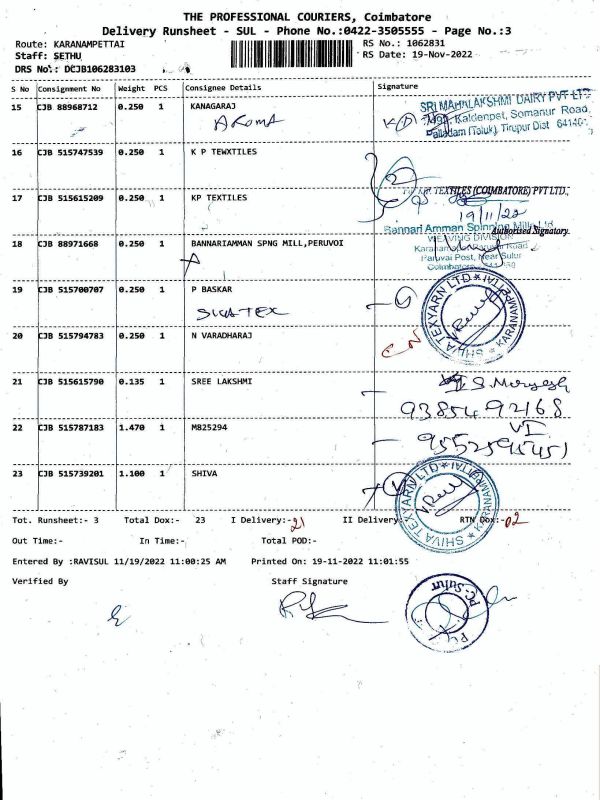 THE PROFESSIONAL COURIERS, Coimbatore
Delivery Runsheet - SUL - Phone No.:0422-3505555 - Page No.:3
Route: KARANAMPETTAI
RS No.: 1062831
Staff: SETHU
RS Date: 19-Nov-2022
DRS No.: DCJB106283103
S No Consignment No Weight PCS Consignee Details Signature
15 CJB 88968712 0.250 1 KANAGARAJ
AROMA
SRI MAHALAKSHMI DAIRY PVT LTD
Kaldenpet, Somanur Road,
Palladam (Taluk), Tirupur Dist
16 CJB 515747539 0.250 1 K P TEWXTILES
17 CJB 515615209 0.250 1 KP TEXTILES
TEXTILES (COIMBATORE) PVT LTD.,
19/11/22
Authorised Signatory.
18 CJB 88971668 0.250 1 BANNARIAMMAN SPNG MILL,PERUVOI
Bannari Amman Spinning Mills Ltd
WEAVING DIVISION
Road
Paruvai Post, Near Sulur
Coimbatore
19 CJB 515700707 0.250 1 P BASKAR
SIVA TEX
SHIVA TEXYARN LTD * KARANAMPETTAI *
20 CJB 515794783 0.250 1 N VARADHARAJ
21 CJB 515615790 0.135 1 SREE LAKSHMI
93854 92168
22 CJB 515787183 1.470 1 M825294
VI
9552595451
23 CJB 515739201 1.100 1 SHIVA
SHIVA TEXYARN LTD * KARANAMPETTAI *
Tot. Runsheet:- 3 Total Dox:- 23 I Delivery:-21 II Delivery:- RTN Dox:-02
Out Time:- In Time:- Total POD:-
Entered By :RAVISUL 11/19/2022 11:00:25 AM Printed On: 19-11-2022 11:01:55
Verified By Staff Signature
P.C. Sulur